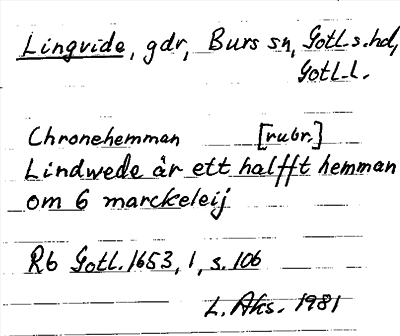 Lingvide, gdr, Burs sn, Gotl. s. hd,
Gotl. l.
Chronehemman [rubr.]
Lindwede är ett halfft hemman
om 6 marckeleij
Rb Gotl. 1653, 1, s. 106
L. Aks. 1981